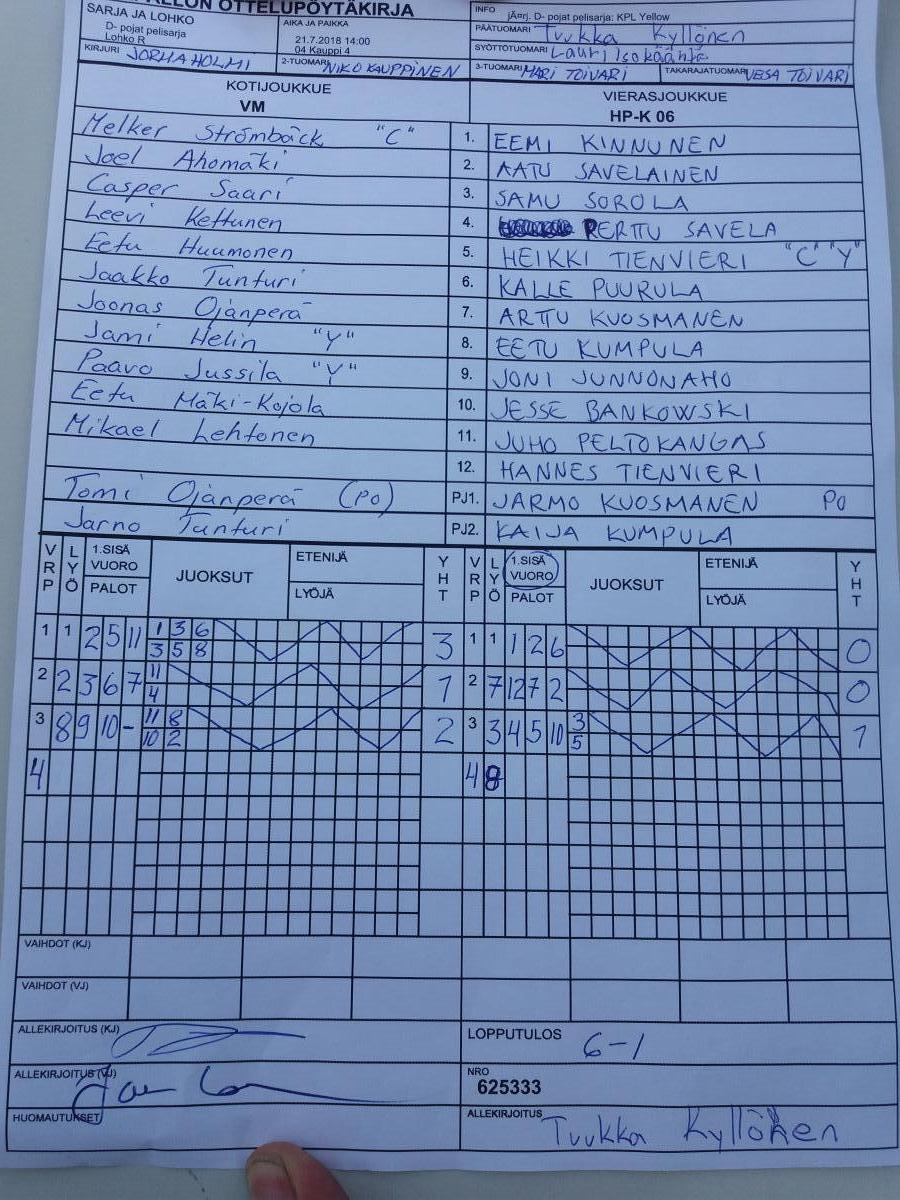 OTTELUPÖYTÄKIRJA
SARJA JA LOHKO
D- pojat pelisarja
Lohko R
AIKA JA PAIKKA
21.7.2018 14:00
04 Kauppi 4
INFO jÄ¤rj. D- pojat pelisarja: KPL Yellow
PÄÄTUOMARI Tuukka Kyllönen
SYÖTTÖTUOMARI Lauri Isokääntä
KIRJURI JORMA HOLMI
2-TUOMARI NIKO KAUPPINEN
3-TUOMARI MARI TOIVARI
TAKARAJATUOMARI VESA TOIVARI
KOTIJOUKKUE
VM
VIERASJOUKKUE
HP-K 06
Melker Strömbäck "C" 1. EEMI KINNUNEN
Joel Ahomäki 2. AATU SAVELAINEN
Casper Saari 3. SAMU SOROLA
Leevi Kettunen 4. PERTTU SAVELA
Eetu Huumonen 5. HEIKKI TIENVIERI "C" "Y"
Jaakko Tunturi 6. KALLE PUURULA
Joonas Ojanperä 7. ARTTU KUOSMANEN
Jami Helin "Y" 8. EETU KUMPULA
Paavo Jussila "Y" 9. JONI JUNNONAHO
Eetu Mäki-Kojola 10. JESSE BANKOWSKI
Mikael Lehtonen 11. JUHO PELTOKANGAS
12. HANNES TIENVIERI
Tomi Ojanperä (PO) PJ1. JARMO KUOSMANEN PO
Jarno Tunturi PJ2. KAIJA KUMPULA
VRP LYÖ 1.SISÄ VUORO PALOT JUOKSUT ETENIJÄ LYÖJÄ YHT VRP LYÖ 1.SISÄ VUORO PALOT JUOKSUT ETENIJÄ LYÖJÄ YHT
1 1 2 5 11 1 3 6 3 1 1 1 2 6 0
3 5 8
2 2 3 6 7 11 1 2 7 12 7 2 0
4
3 8 9 10 - 11 8 2 3 3 4 5 10 3 1
10 2 5
4 4 8
VAIHDOT (KJ)
VAIHDOT (VJ)
ALLEKIRJOITUS (KJ)
LOPPUTULOS 6-1
ALLEKIRJOITUS (VJ)
NRO
625333
HUOMAUTUKSET
ALLEKIRJOITUS Tuukka Kyllönen